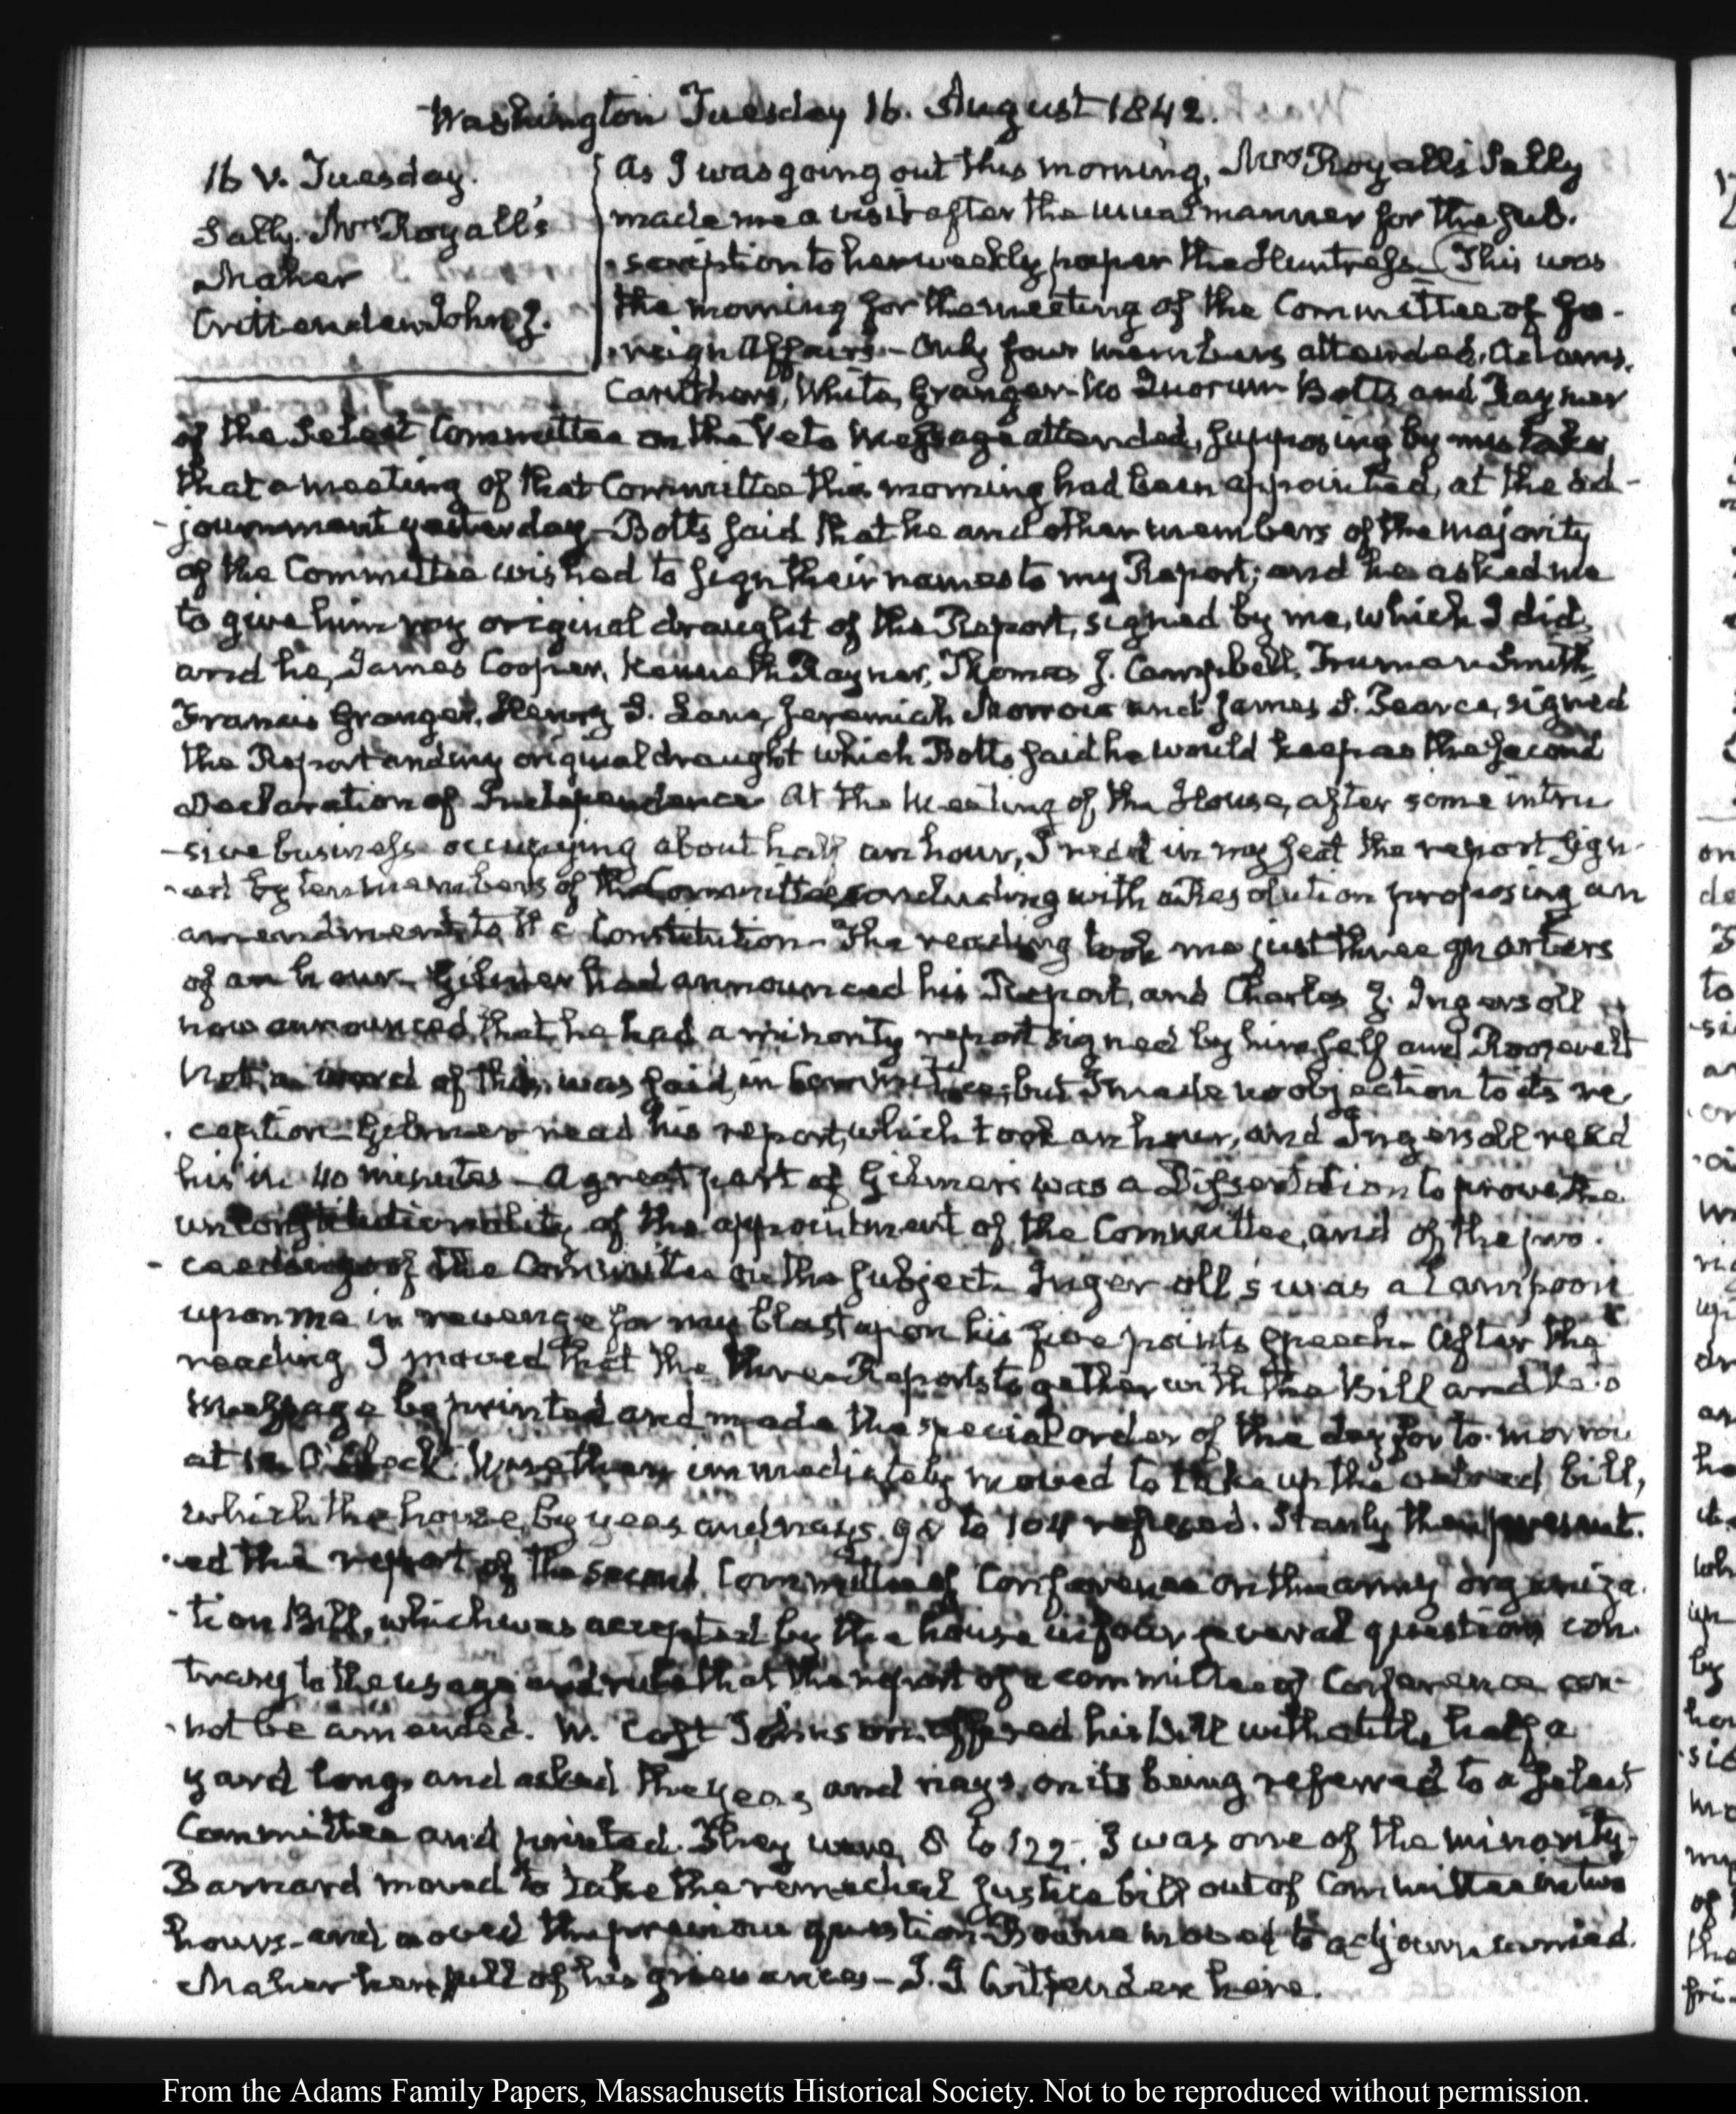 Washington Tuesday 16. August 1842.
16 V. Tuesday.
Sally. Mrs Royall's
Maher
Crittenden John J.
As I was going out this morning, Mrs Royall's Sally
made me a visit after the usual manner for the sub-
-scription to her weekly paper the Huntress. This was
the morning for the meeting of the Committee of Fo-
-reign Affairs.- Only four members attended, Adams,
Caruthers, White, Granger- No Quorum Botts and Rayner
of the Select Committee on the Veto Message attended, supposing by mistake
that a meeting of that Committee this morning had been appointed, at the ad-
-journment yesterday- Botts said that he and other members of the majority
of the Committee wished to sign their names to my Report; and he asked me
to give him my original draught of the Report, signed by me, which I did,
and he, James Cooper, Kenneth Rayner, Thomas J. Campbell, Truman Smith,
Francis Granger, Henry S. Lane, Jeremiah Morrow and James A. Pearce, signed
the Report and my original draught which Botts said he would keep as the second
Declaration of Independence At the Meeting of the House, after some intru-
-sive business occupying about half an hour, I read in my seat the report sign-
-ed by ten members of the Committee concluding with a Resolution proposing an
amendment to the Constitution- The reading took me just three quarters
of an hour- Gilmer had announced his Report, and Charles J. Ingersoll
now announced, that he had a minority report signed by himself and Roosevelt
Not a word of this, was said in Committee; but I made no objection to its re-
-ception- Gilmer read his report, which took an hour, and Ingersoll read
his in 40 minutes- A great part of Gilmer's was a Dissertation to prove the
unconstitutionality of the appointment of the Committee, and of the pro-
-ceedings of the Committee on the subject- Ingersoll's was a lampoon
upon me in revenge for my blast upon his five points speech- After the
reading I moved that the three Reports together with the Bill and Veto
Message be printed and made the special order of the day for to-morrow
at 12 O'Clock. immediately moved to take up the vetoed bill,
which the house, by yeas and nays 98 to 104 refused. Stanly then present-
-ed the report of the second Committee of Conference on the army organiza-
-tion Bill, which was accepted by the house several questions con-
trary to the usage and rule that the report of a committee of Conference can-
-not be amended. W. Cost Johnson offered his Bill with a title half a
yard long, and asked the yeas and nays, on its being referred to a select
Committee and printed. They were 8 to 122. I was one of the minority-
Barnard moved to take the remedial justice bill out of Committee in two
hours- and moved the previous question- moved to adjourn carried.
Maher here full of his grievances- J. J. Crittenden here.
on
de
to
From the Adams Family Papers, Massachusetts Historical Society. Not to be reproduced without permission.